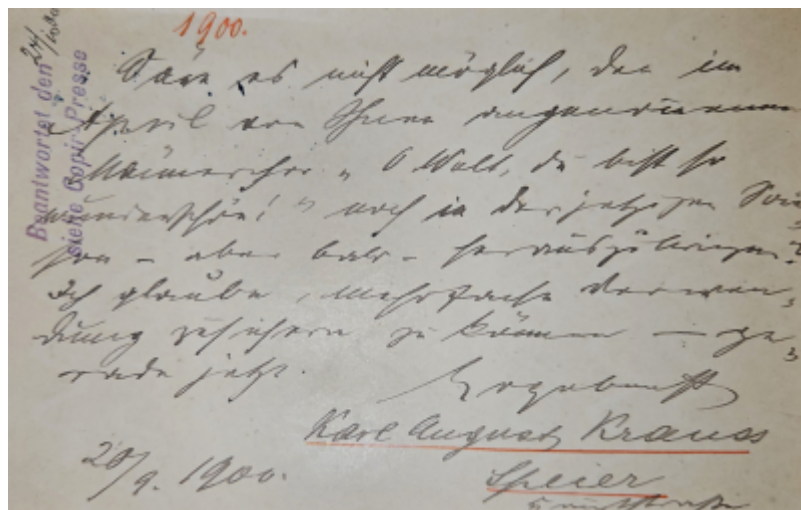 1900.
24/9.1900
Beantwortet den
siehe Copir-Presse
Wäre es nicht möglich, den im
April von Ihnen angenommenen
Männerchor „O Welt, du bist so
wunderschön!" noch in der jetzigen Sai-
son – aber bald – herauszubringen?
Ich glaube, mehrfache Verwen-
dung zusichern zu können – ge-
rade jetzt.
Ergebenst
Karl August Krauss
Speier
20/9. 1900.